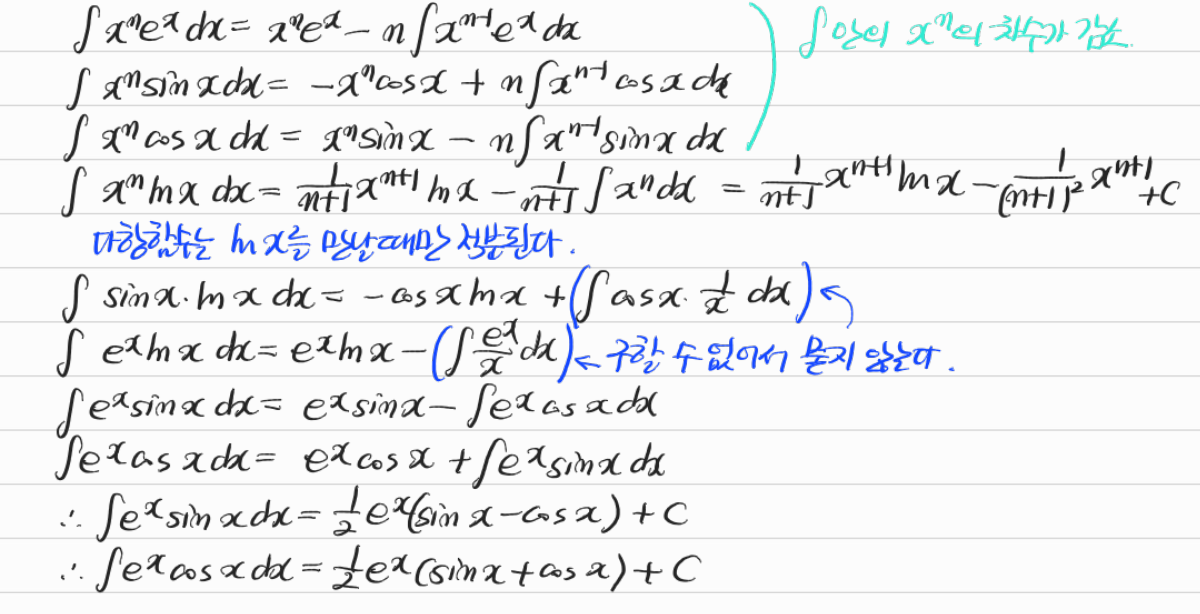 ∫xⁿeˣdx = xⁿeˣ - n∫xⁿ⁻¹eˣdx ∫안의 xⁿ의 차수가 감소.
∫xⁿsinxdx = -xⁿcosx + n∫xⁿ⁻¹cosxdx
∫xⁿcosxdx = xⁿsinx - n∫xⁿ⁻¹sinxdx
∫xⁿlnx dx = 1/(n+1) xⁿ⁺¹lnx - 1/(n+1) ∫xⁿdx = 1/(n+1) xⁿ⁺¹lnx - 1/(n+1)² xⁿ⁺¹ + C
다항함수는 lnx를 만날때만 적분된다.
∫sinx·lnx dx = -cosxlnx + (∫cosx·1/x dx)
∫eˣlnx dx = eˣlnx - (∫eˣ/x dx) ← 구할 수 없어서 묻지 않는다.
∫eˣsinx dx = eˣsinx - ∫eˣcosxdx
∫eˣcosxdx = eˣcosx + ∫eˣsinxdx
∴ ∫eˣsinxdx = 1/2 eˣ(sinx - cosx) + C
∴ ∫eˣcosxdx = 1/2 eˣ(sinx + cosx) + C